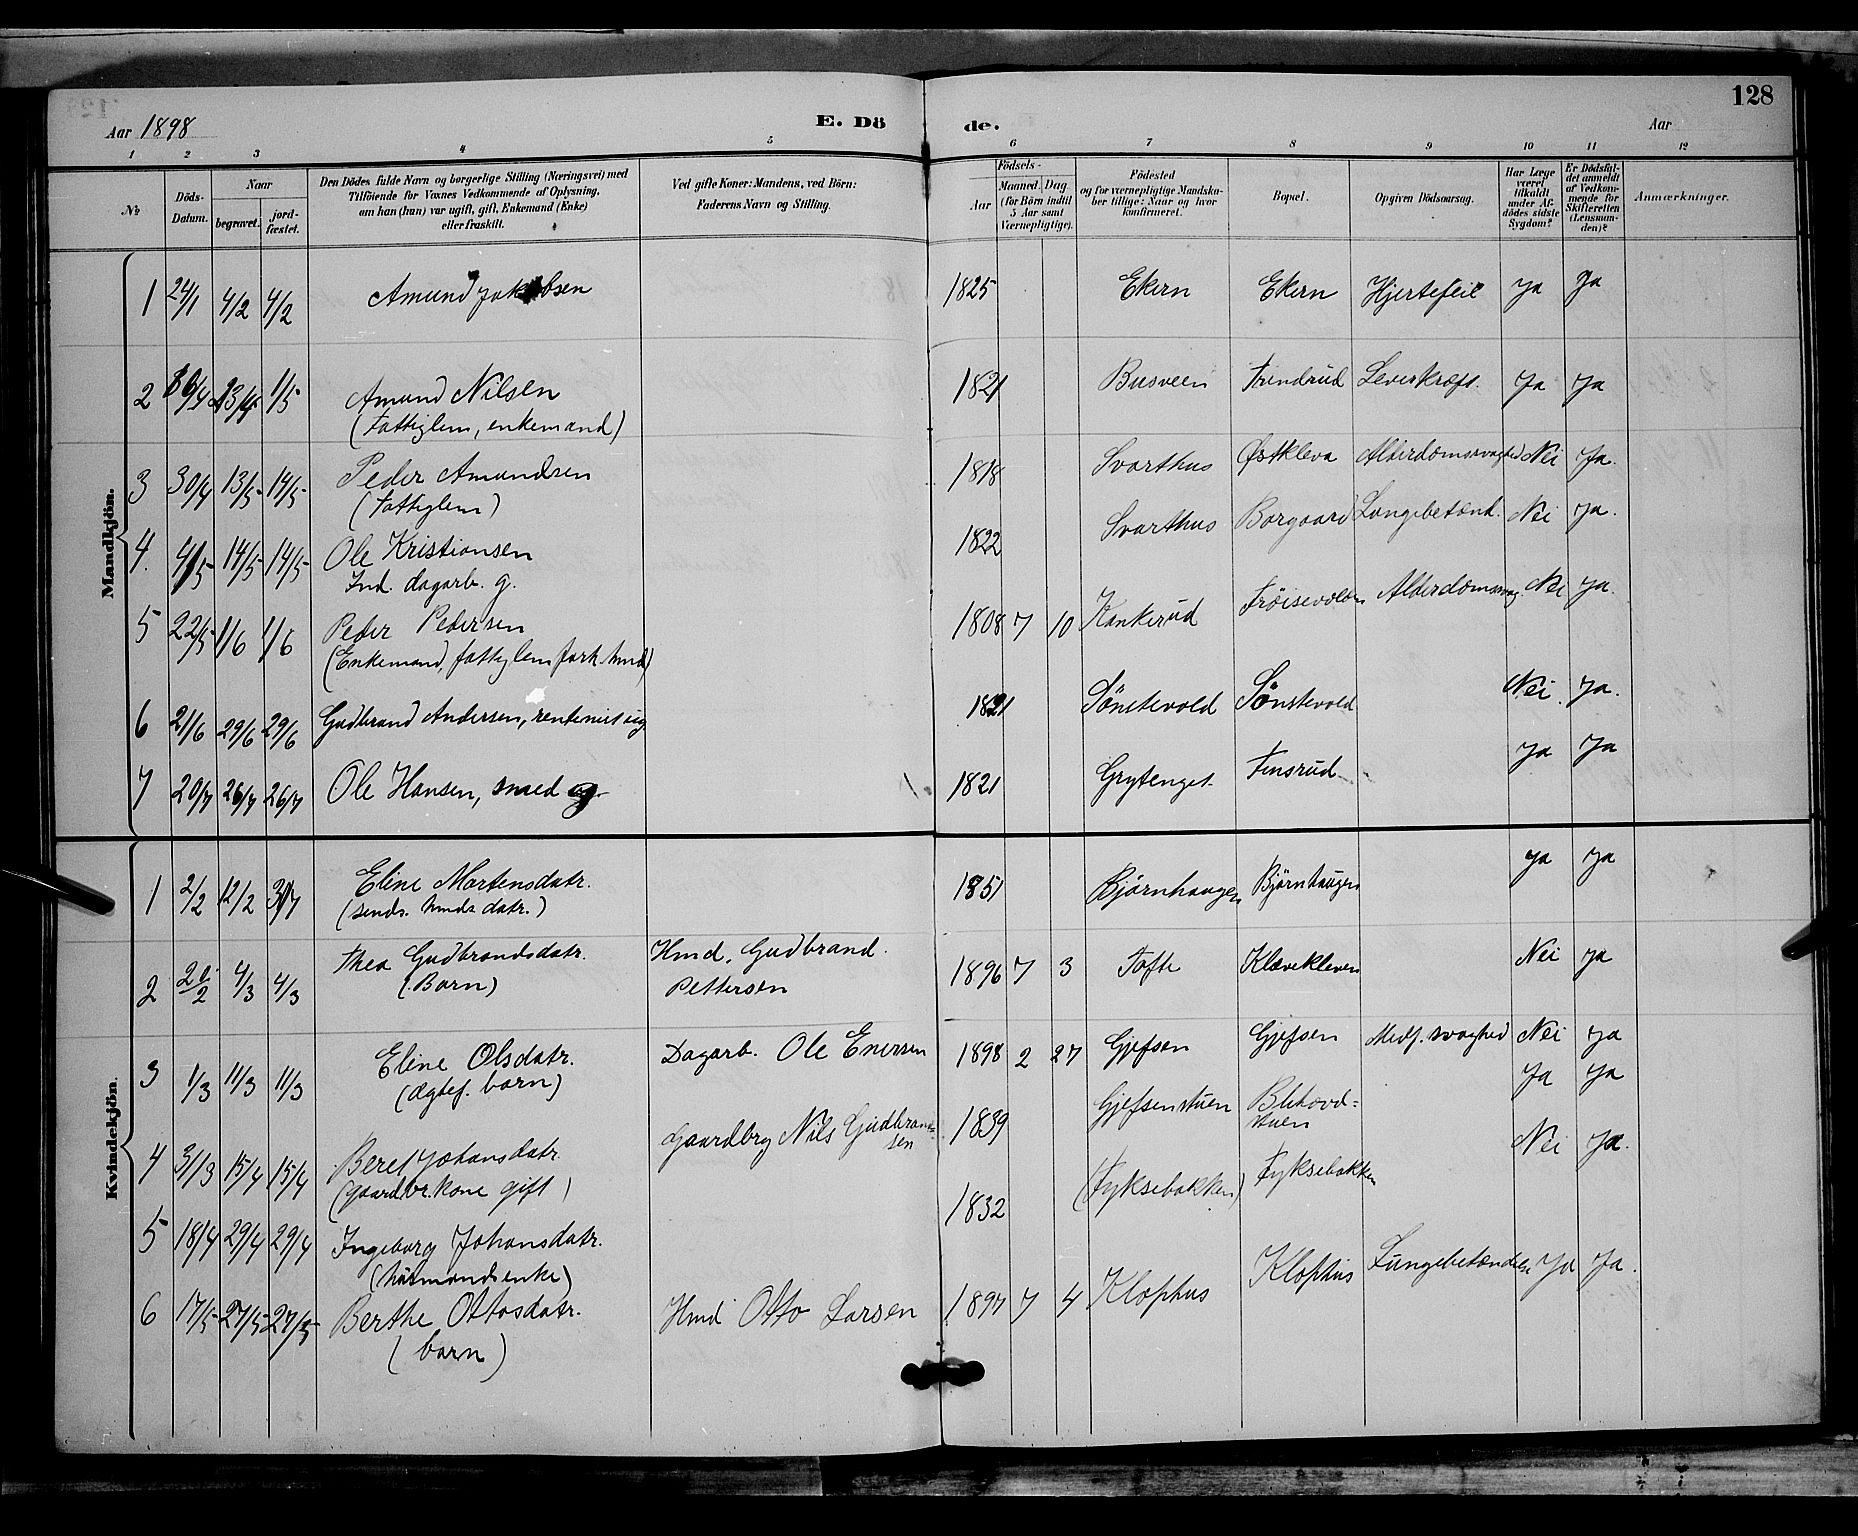 128
Aar 1898
E. Dö
de.
Aar
1 2 3 4 5 6 7 8 9 10 11 12
№
Döds-Datum.
Naar
begravet.
jord-fæstet.
Den Dödes fulde Navn og borgerlige Stilling (Næringsvei) med
Tilföiende for Voxnes Vedkommende af Oplysning,
om han (hun) var ugift, gift, Enkemand (Enke)
eller fraskilt.
Ved gifte Koner: Mandens, ved Börn:
Faderens Navn og Stilling.
Födsels-
Aar
Maaned. Dag
(for Börn indtil
5 Aar samt
Værnepligtige).
Födested
og for værnepligtige Mandska-
ber tillige: Naar og hvor
konfirmeret.
Bopæl.
Opgiven Dödsaarsag.
Har Læge
været
tilkaldt
under Af-
dödes sidste
Sygdom?
Er Dödsfal-
det anmeldt
af Vedkom-
mende for
Skifteretten
(Lensman-
den)?
Anmærkninger.
Mandkjön.
1 24/1 4/2 4/2 Amund Jakobsen 1825 Ekern Ekern Hjertefeil Ja Ja
2 1/5 Amund Nilsen 1821 Busveen Trendrud Leverkræft. Ja Ja
(Fattiglem, enkemand)
3 30/4 13/5 14/5 Peder Amundsen 1818 Svarthus Østkleva Alderdomssvaghed Nei Ja.
(Fattiglem)
4. 4/5 14/5 14/5 Ole Kristiansen 1822 Svarthus Borgaard Lungebetænd. Nei Ja.
Ind. dagarb. g.
5 22/5 1/6 1/6 Peder Pedersen 1808 7 10 Kankerud Tröisevolden Alderdomssvag. Nei Ja.
(Enkemand, fattiglem, hmd)
6 21/6 29/6 29/6 Gudbrand Andersen, 1821 Sönstevold Sönstevold Nei. Ja.
7 20/7 26/7 26/7 Ole Hansen, smed g. 1821 Grytenget. Finsrud Ja Ja
Kvindekjön.
1 2/2 12/2 31/7 Eline Martensdatr. 1851 Björnhaugen Björnhaugen Ja Ja
(sinds. hmds datr.)
2 4/3 4/3 Thea Gudbrandsdatr. Hmd. Gudbrand 1896 7 3 Tofte Klævekleven Nei Ja
(Barn) Pettersen
3 1/3 11/3 11/3 Eline Olsdatr. Dagarb. Ole Enersen 1898 2 27 Gjefsen Gjefsen Medf. svaghed Nei Ja
(ægtef. barn)
4 31/3 15/4 15/4 Beret Johansdatr. Gaardbrg Nils Gudbrand=sen 1839 Gjefsenstuen Blihovd=stuen Ja Ja
(gaardbr. kone gift)
5 18/4 29/4 29/4 Ingeborg Johansdatr. 1832 (Fyksebakken) Fyksebakken Nei Ja.
(husmandsenke)
6 17/5 27/5 27/5 Berthe Ottosdatr. Hmd Otto Larsen 1897 7 4 Klophus Klophus Lungebetændelse Ja Ja.
(barn)